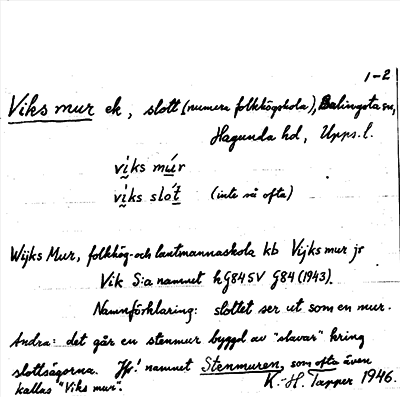 1-2
Viks mur ek, slott (numera folkhögskola), Balingsta sn,
Hagunda hd, Upps. l.
víks múr
víks slót (inte så ofta)
Wijks Mur, folkhög- och lantmannaskola kb Vijks mur jr
Vik S:a namnet hG84SV G84 (1943).
Namnförklaring: slottet ser ut som en mur.
Andra: det går en stenmur byggd av "slavar" kring
slottsägorna. Jfr! namnet Stenmuren, som ofta även
kallas "Viks mur". K.-H. Tapper 1946.